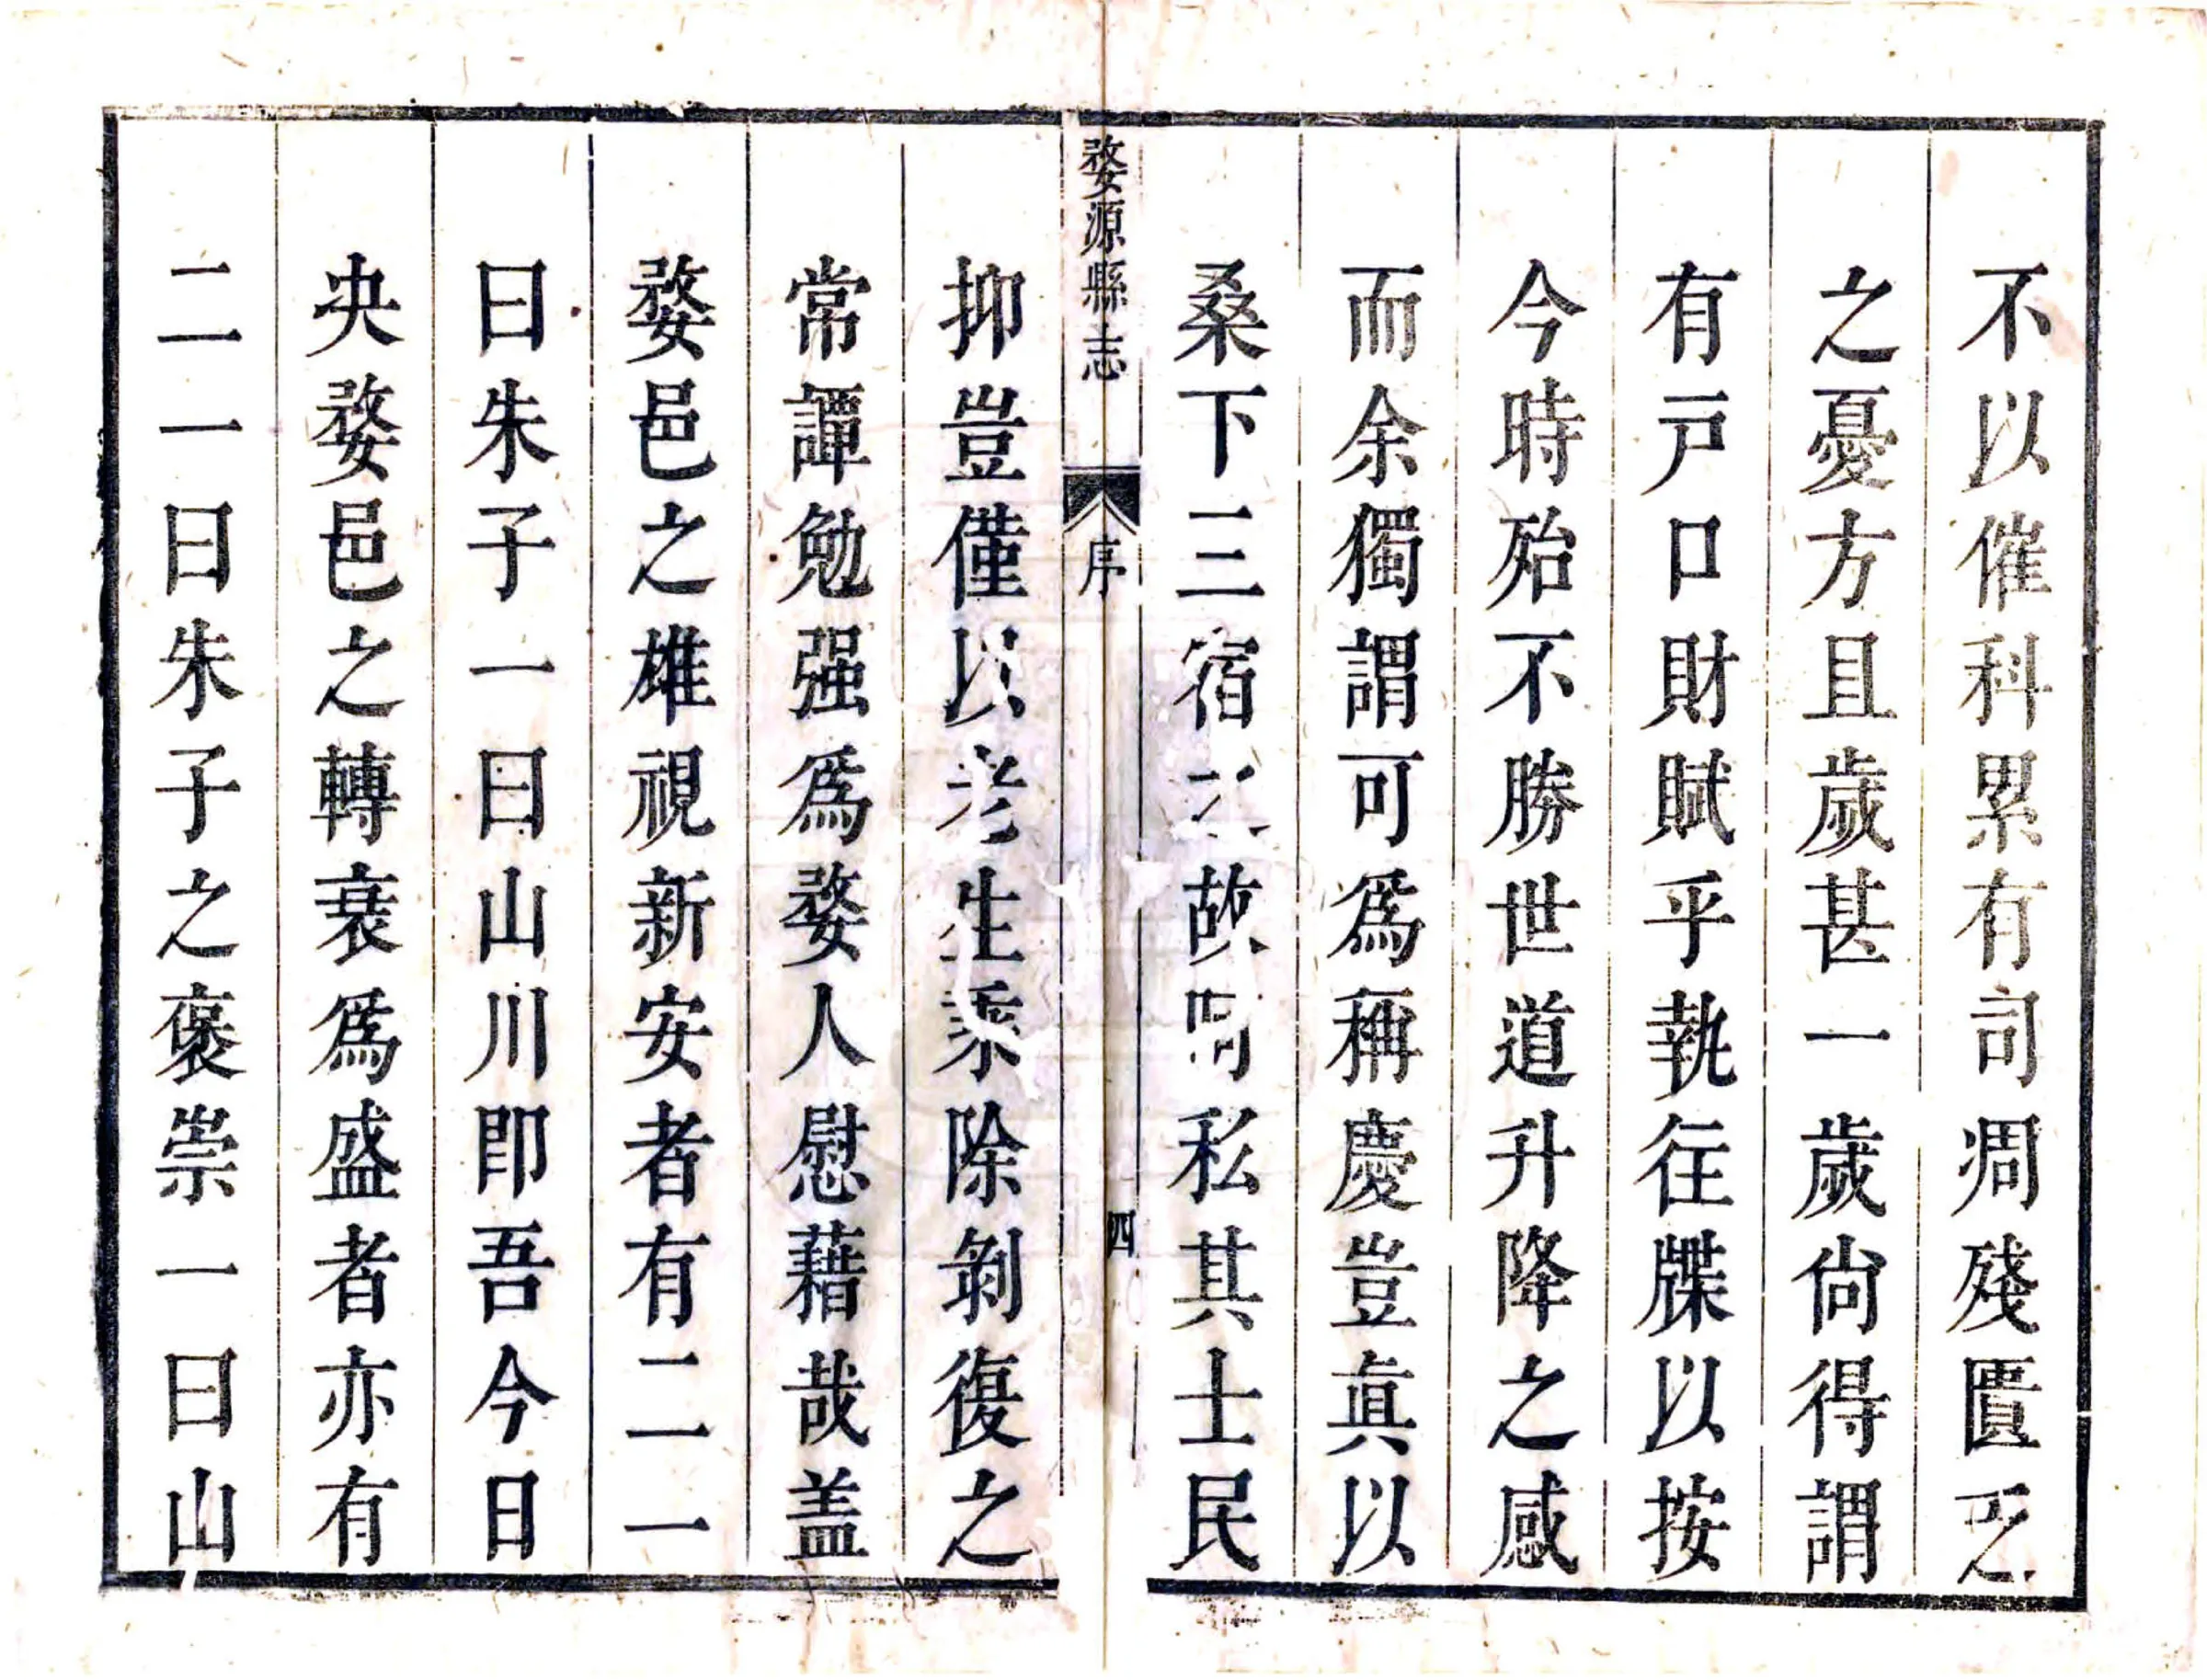 不以催科累有司凋殘匱乏
之憂方且歲甚一歲尙得謂
有戸口財賦乎執徃牒以按
今時殆不勝世道升降之感
而余獨謂可爲稱慶豈眞以
桑下三宿之故而私其士民
婺源縣志
序
四
抑豈僅以考生乘除剝復之
常譚勉强爲婺人慰藉哉盖
婺邑之雄視新安者有二一
曰朱子一曰山川即吾今日
央婺邑之轉衰爲盛者亦有
二一曰朱子之褒崇一曰山